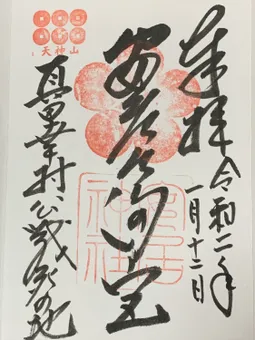 奉拝
令和二年
一月十二日
安居神社
天神山
真田幸村公戦死の地
安居神社